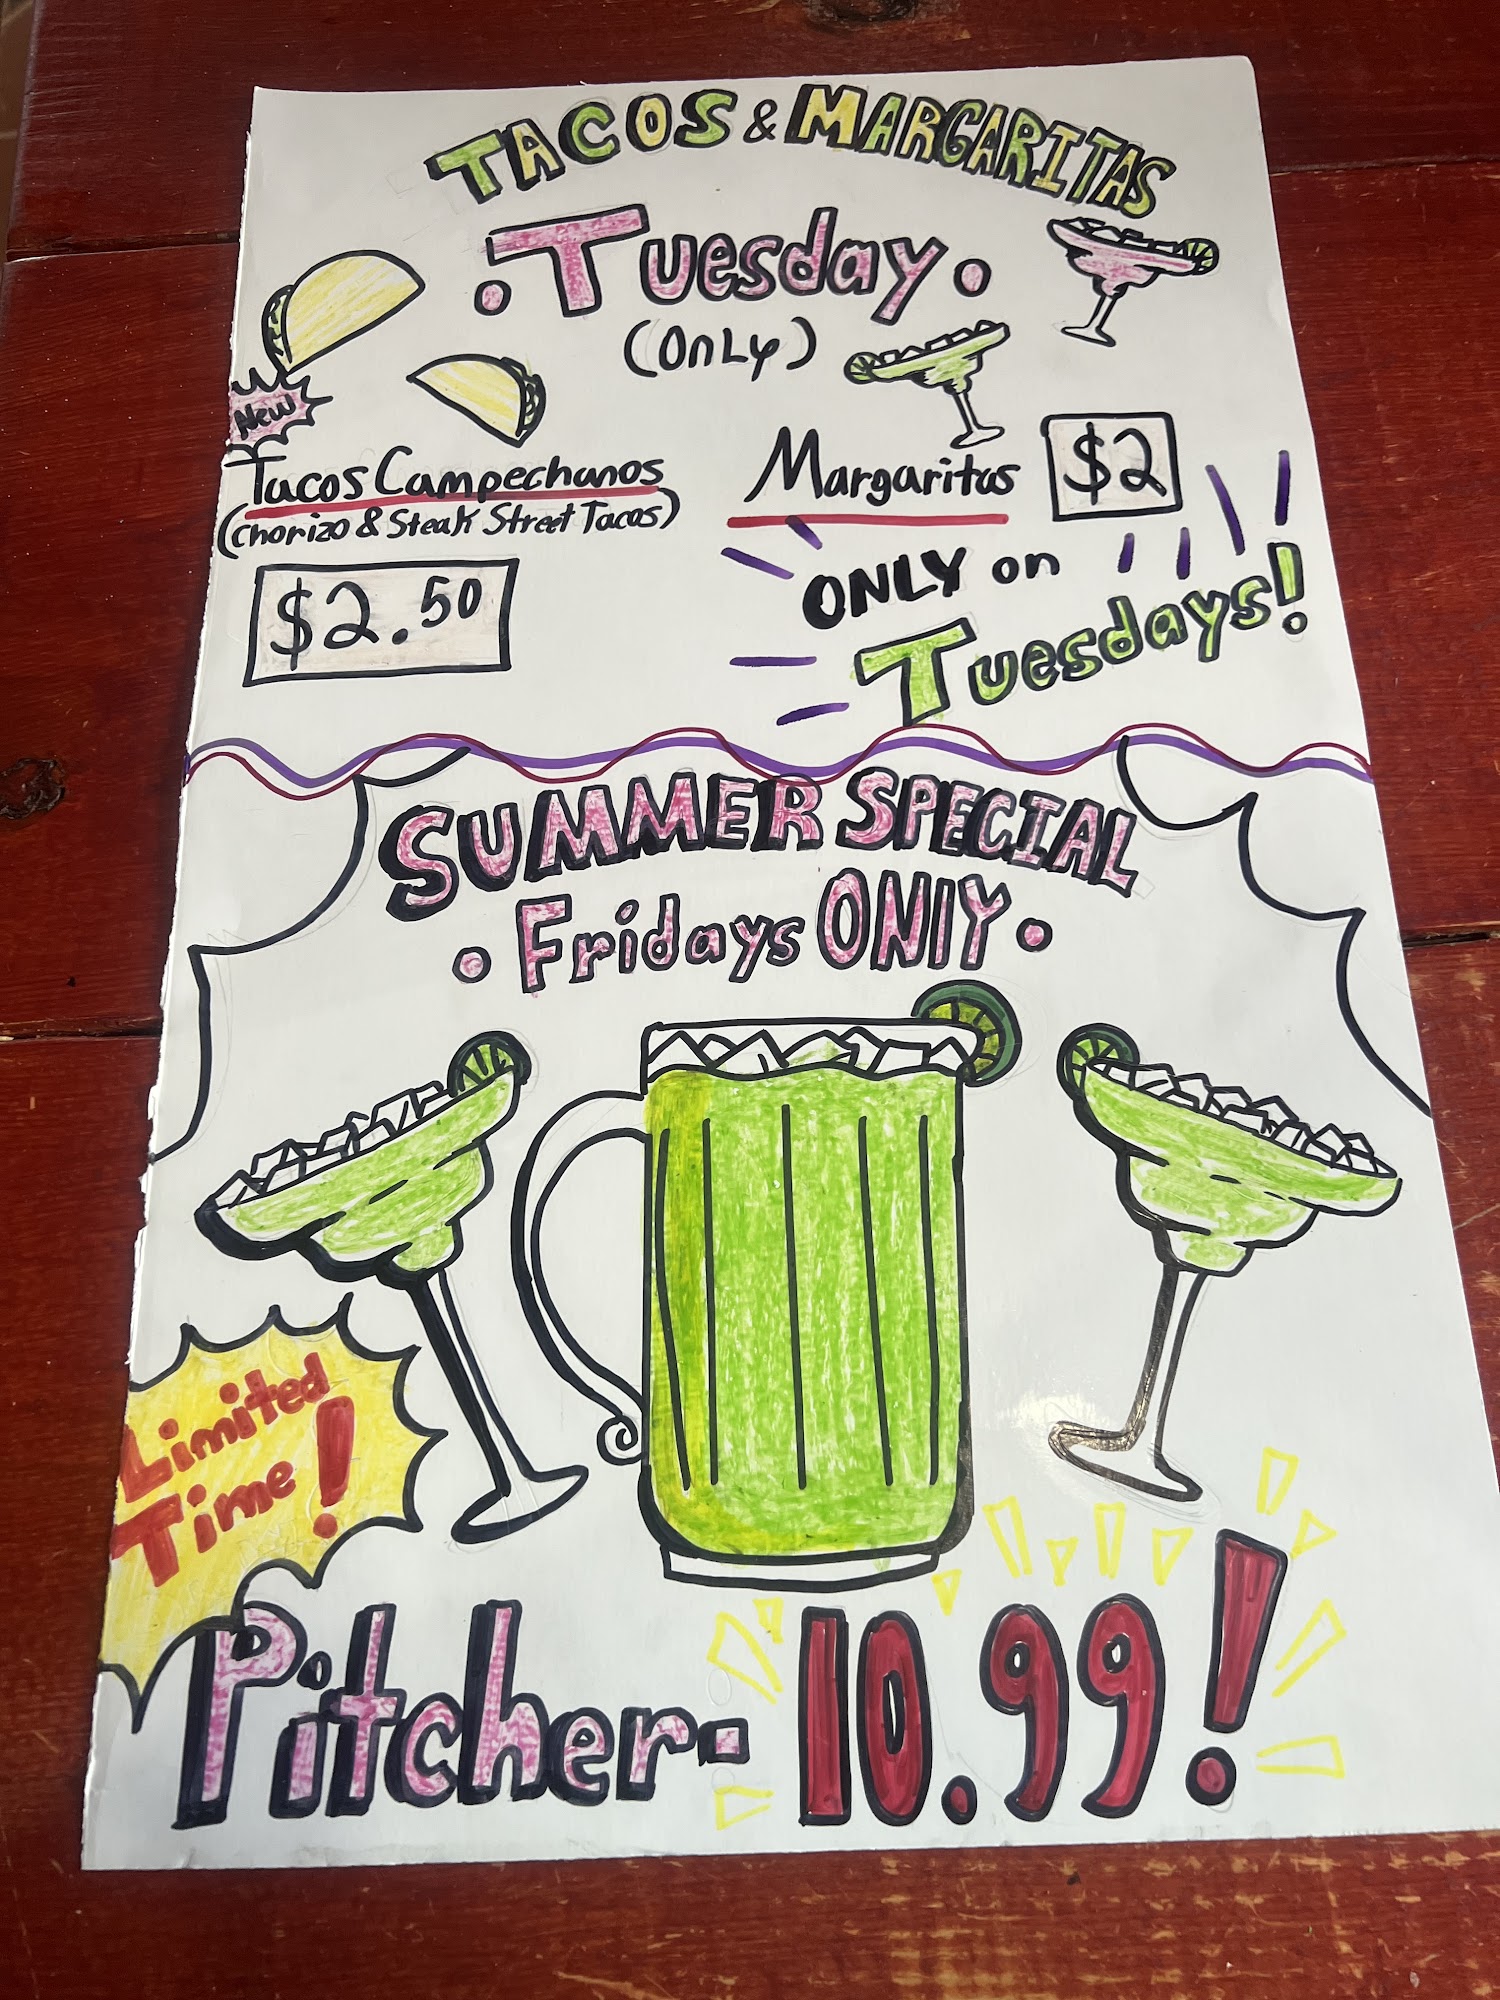 TACOS & MARGARITAS
• Tuesday •
(Only)
New
Tacos Campechanos
(Chorizo & Steak Street Tacos)
$2.50
Margaritas $2
ONLY on
Tuesdays!
SUMMER SPECIAL
• Fridays ONlY •
Limited
Time!
Pitcher- 10.99!